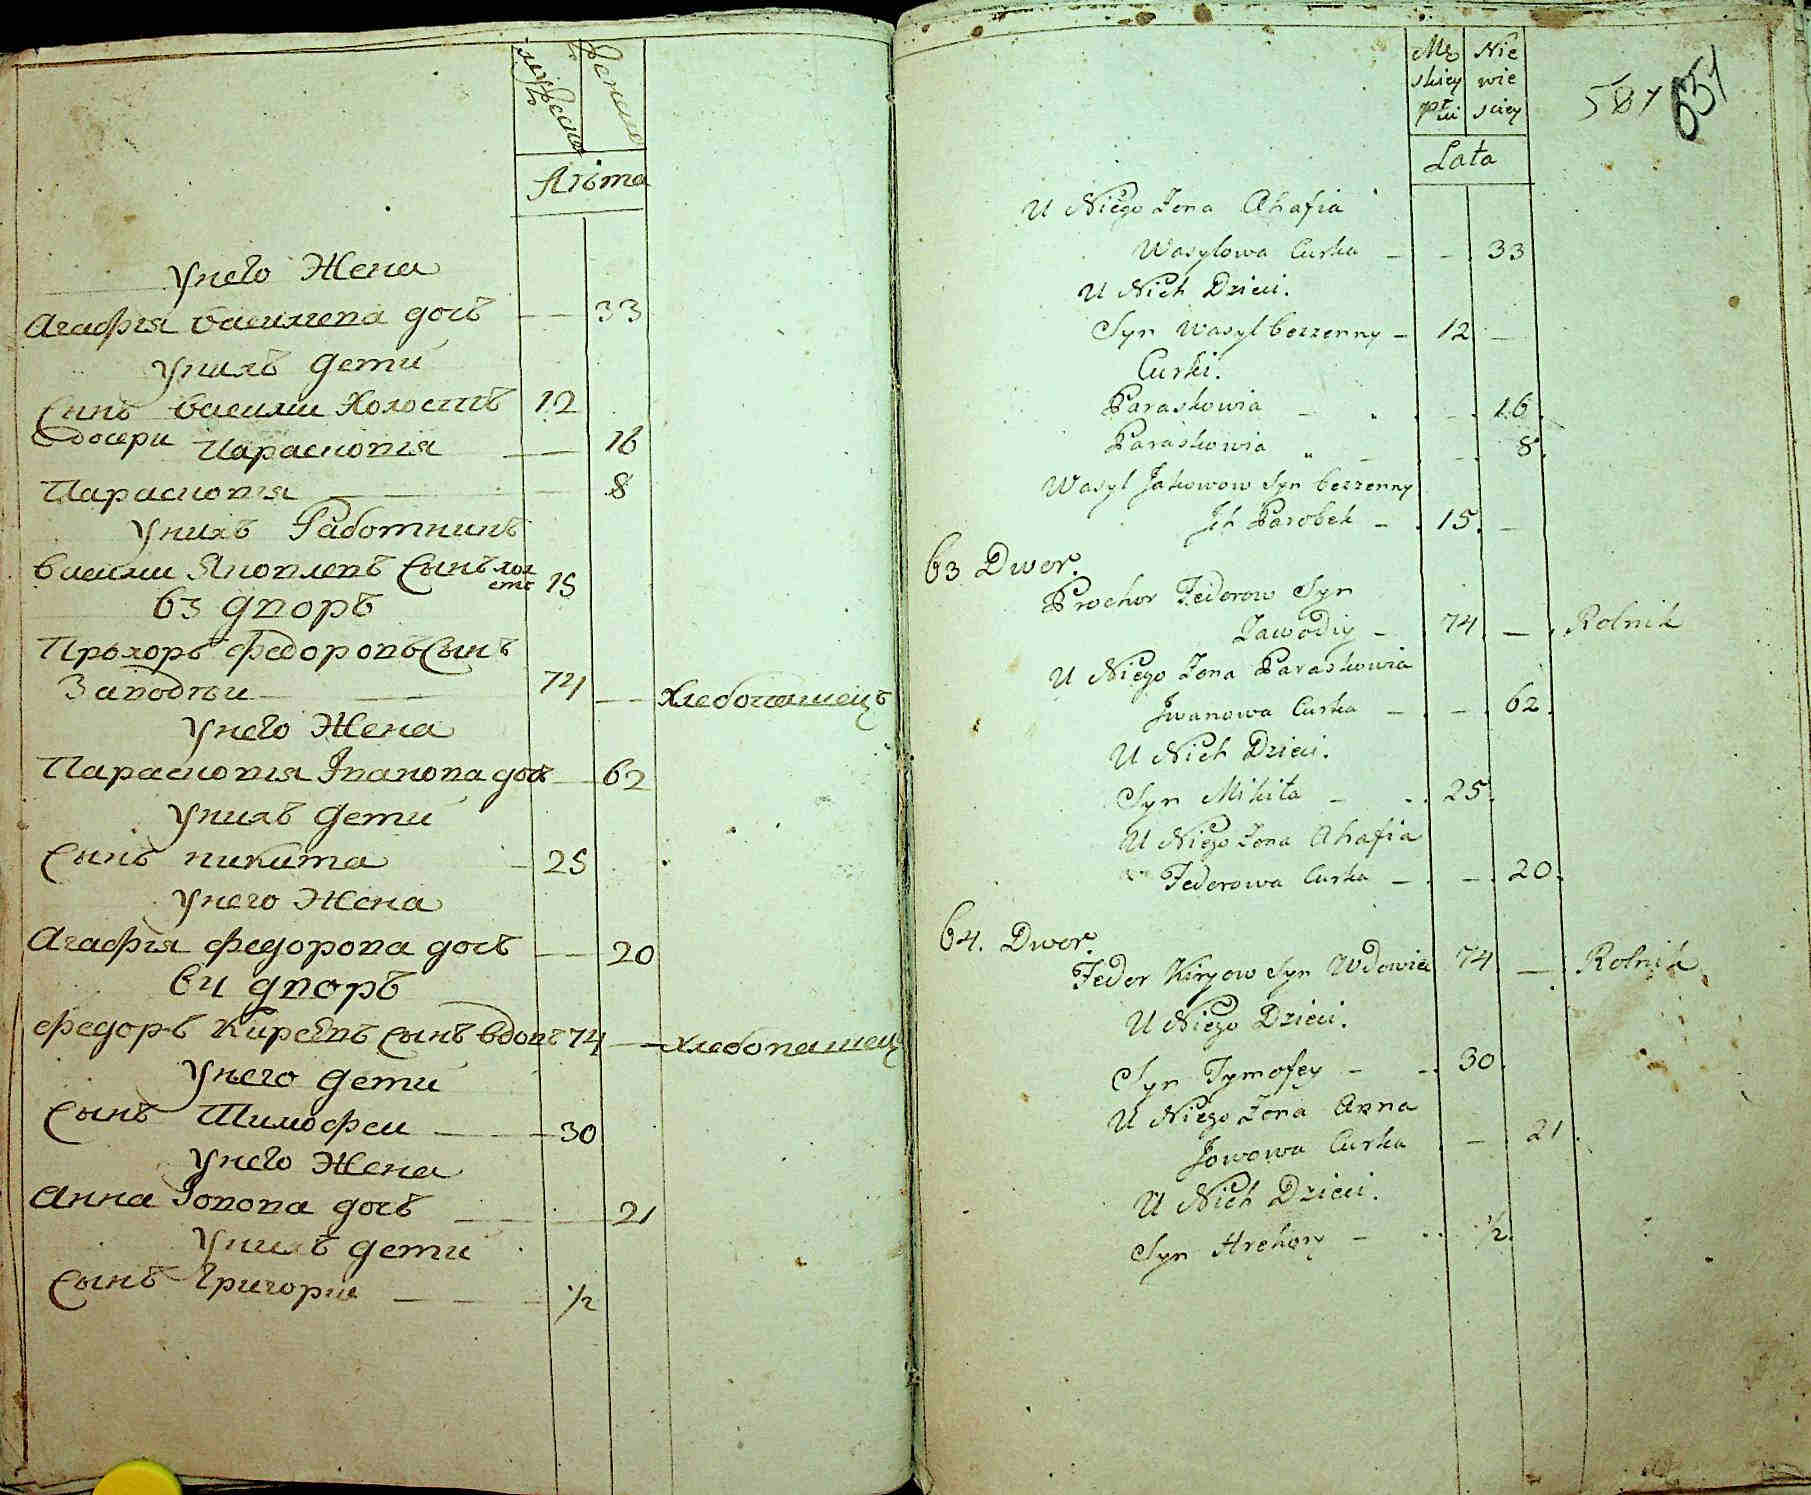 мужеска
женска
Лѣта
У него Жена
Агафія василіева дочъ — — 33
У нихъ дети
Синъ василии Холостъ 12
Дочери Парасковія — 16
Парасковія — — 8
У нихъ Работникъ
василии Яковлевъ Сынъ хол
остъ 15
63 дворъ
Прохоръ федоровъ Сынъ
Заводѣи — — 74 — Хлебопашецъ
У него Жена
Парасковія Іванова дочъ — 62
У нихъ дети
Сынъ никита — 25
У него Жена
Агафія федорова дочъ — — 20
64 дворъ
федоръ Киреевъ Сынъ вдовъ 74 — хлебопашецъ
У него дети
Сынъ Тимофеи — — 30
У него Жена
Анна Іовова дочъ — — 21
У нихъ дети
Сынъ Григории — — — 1/2
Mę Nie
skiey wie
płci sciey
587 651
Lata
U Niego Zona Ahafia
Wasylowa Curka — — 33
U Nich Dzieci.
Syn Wasyl bezzenny — 12 —
Curki.
Paraskowia — — 16.
Paraskowia „ — — 8.
Wasyl Jakowow Syn bezzenny
Ich Parobek — 15. —
63 Dwor.
Prochor Fedorow Syn
Zawodiy — 74 — Rolnik
U Niego Zona Paraskowia
Jwanowa Curka — — 62.
U Nich Dzieci.
Syn Mikita — 25.
U Niego Zona Ahafia
Fedorowa Curka — — 20.
64. Dwor.
Fedor Kiryow Syn Wdowiec 74 — Rolnik
U Niego Dzieci.
Syn Tymofey — 30.
U Niego Zona Anna
Jowowa Curka — 21.
U Nich Dzieci.
Syn Hrehory — 1/2.